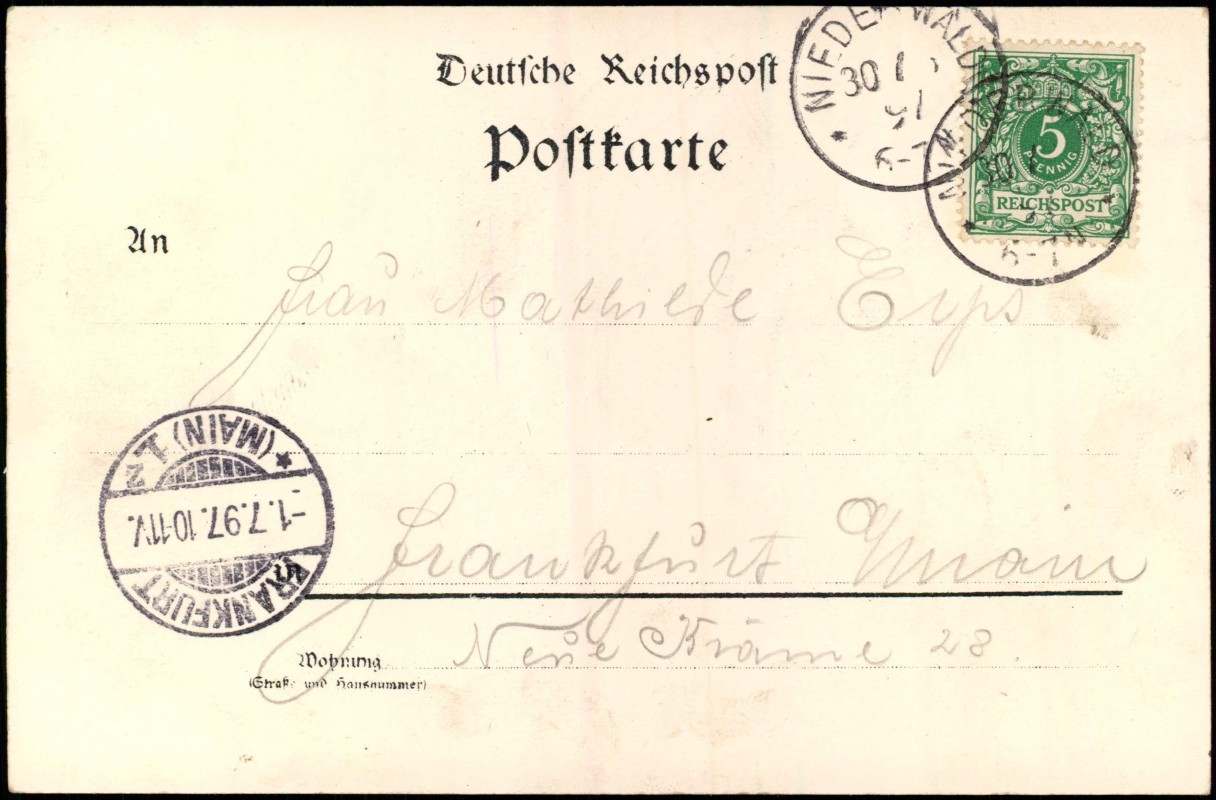 Deutsche Reichspost
Postkarte
NIEDERWALD
30
97
6-7
5
PFENNIG
REICHSPOST
NIEDERWALD
30
6-7 N
An
Frau Mathilde
Frankfurt a/Main
Wohnung
(Straße und Hausnummer)
Neue Kräme 23.
FRANKFURT
-1.7.97.10-11V.
* (MAIN) 1 z